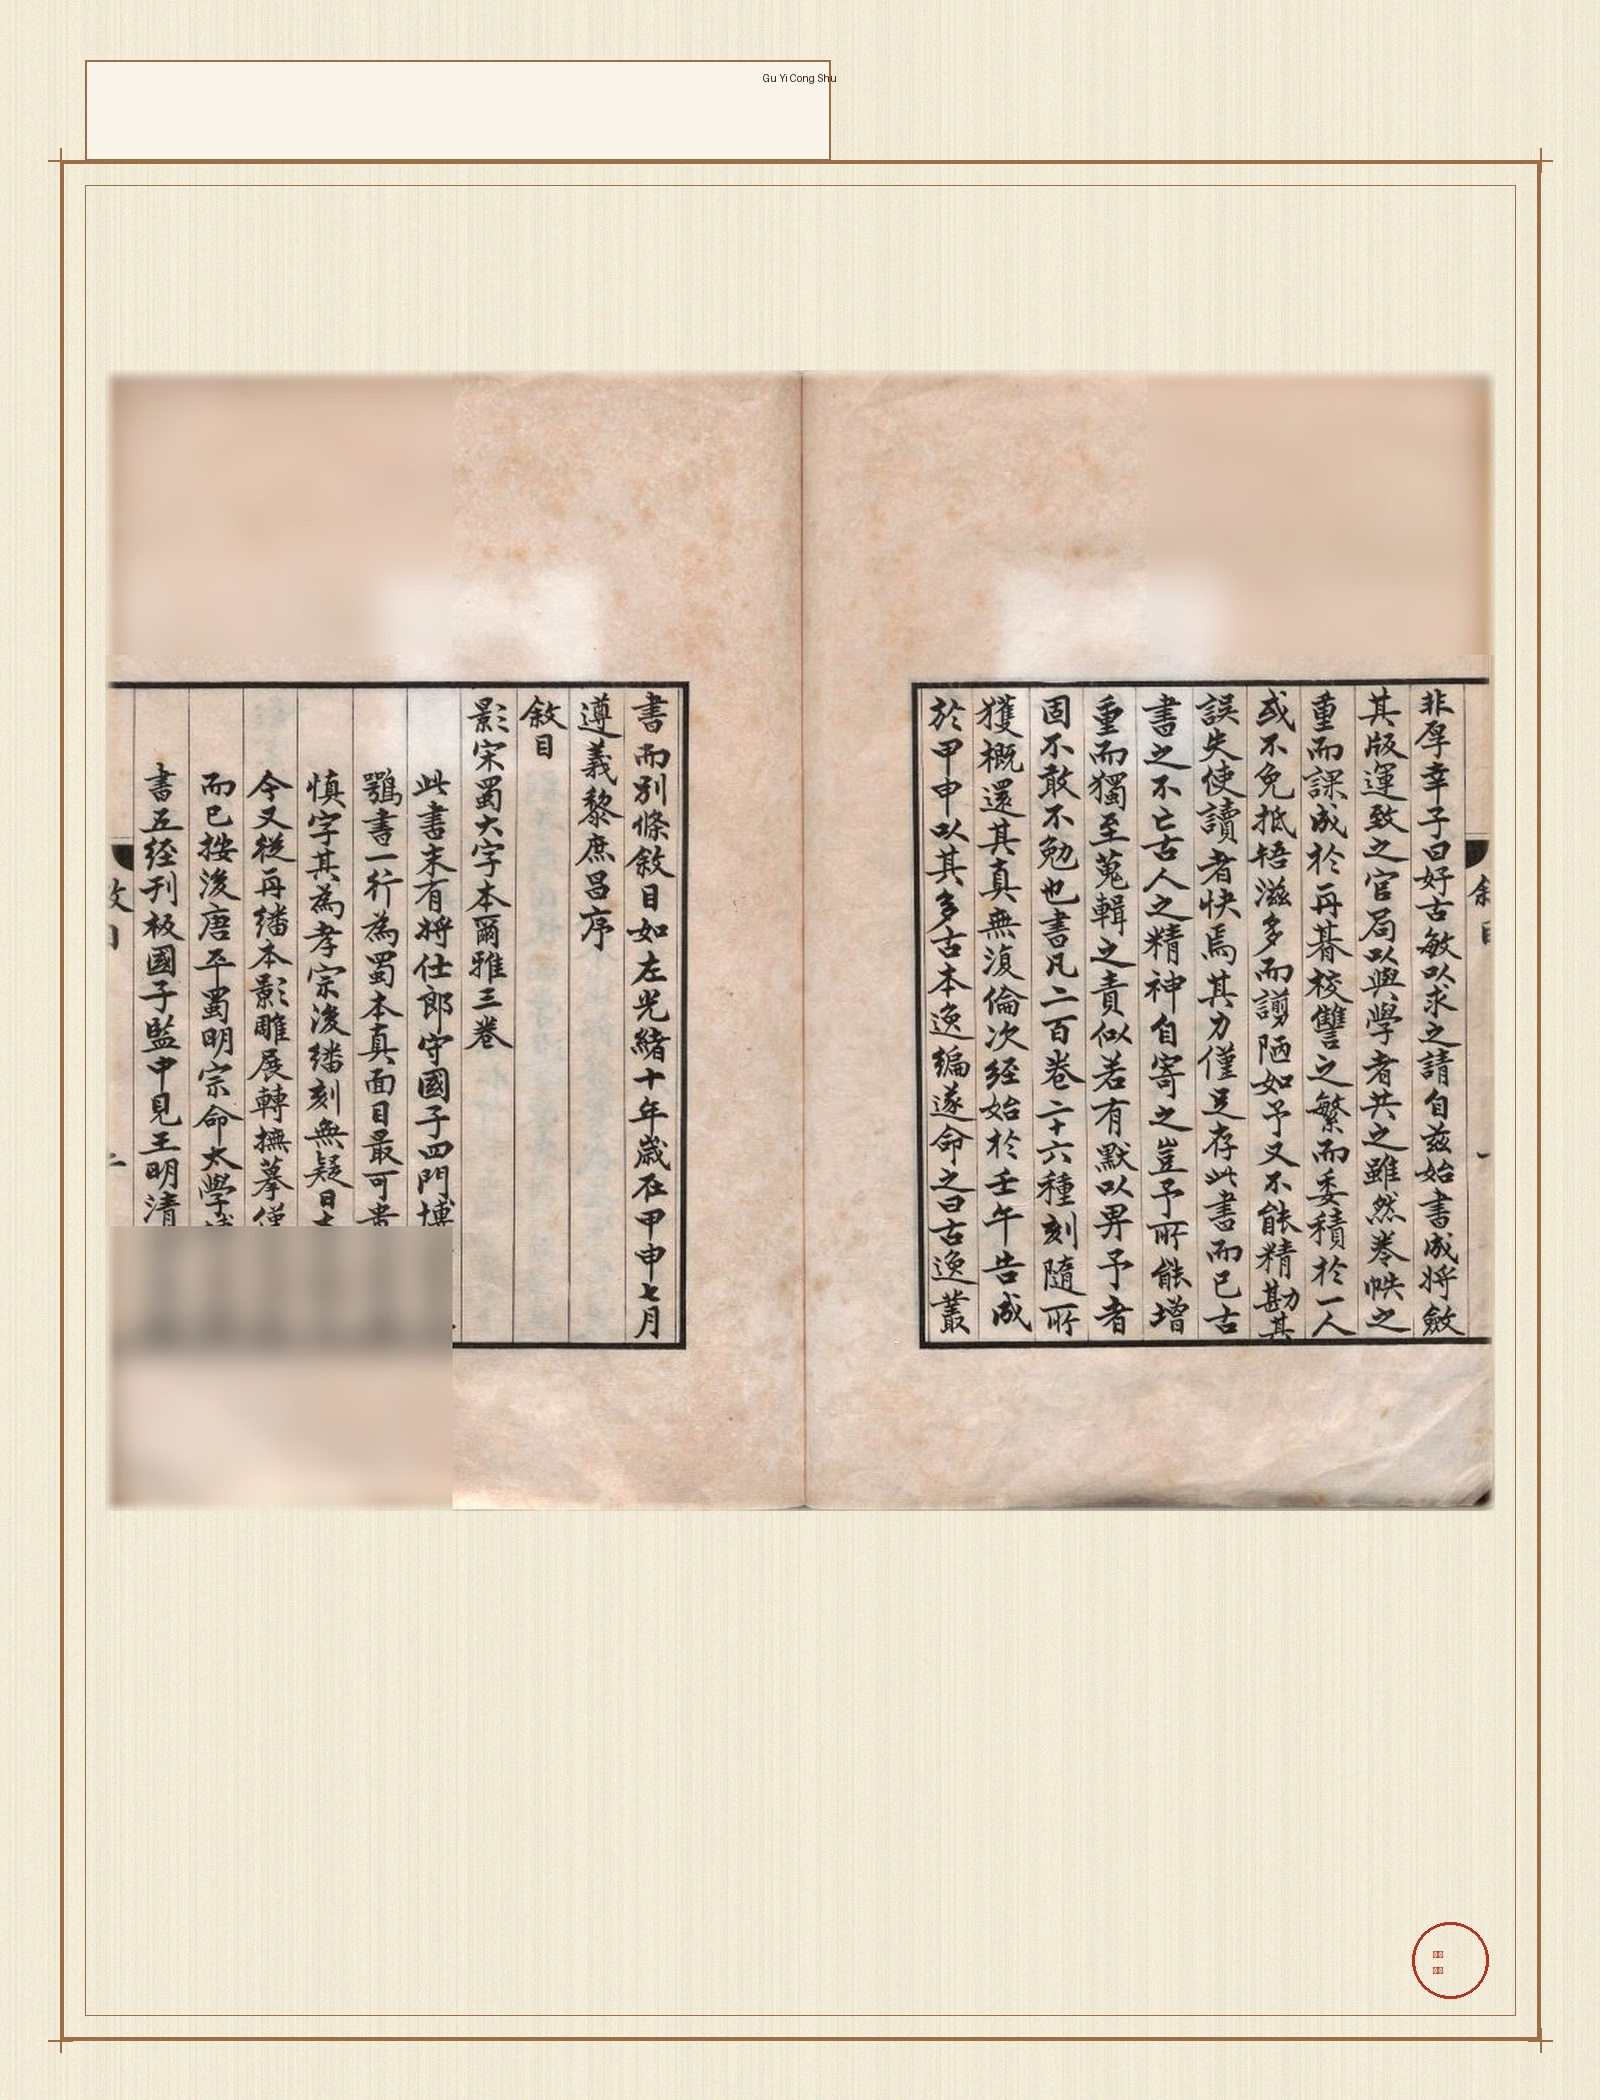 Gu Yi Cong Shu
非厚幸子曰好古敏以求之請自茲始書成將斂
其版運致之官局以與學者共之雖然卷帙之
重而課成於再朞校讐之繁而委積於一人
或不免抵牾滋多而謭陋如予又不能精勘其
誤失使讀者快焉其力僅足存此書而已古
書之不亡古人之精神自寄之豈予所能增
重而獨至蒐輯之責似若有默以畀予者
固不敢不勉也書凡二百卷二十六種刻隨所
獲概還其真無復倫次経始於壬午告成
於甲申以其多古本逸編遂命之曰古逸叢
書而別條敘目如左光緒十年歲在甲申七月
遵義黎庶昌序
敘目
影宋蜀大字本爾雅三卷
此書末有將仕郎守國子四門博
鶚書一行為蜀本真面目最可貴
慎字其為孝宗後繙刻無疑日本
今又從再繙本影雕展轉撫摹僅
而已按後唐平蜀明宗命太學
書五経刊板國子監中見王明清